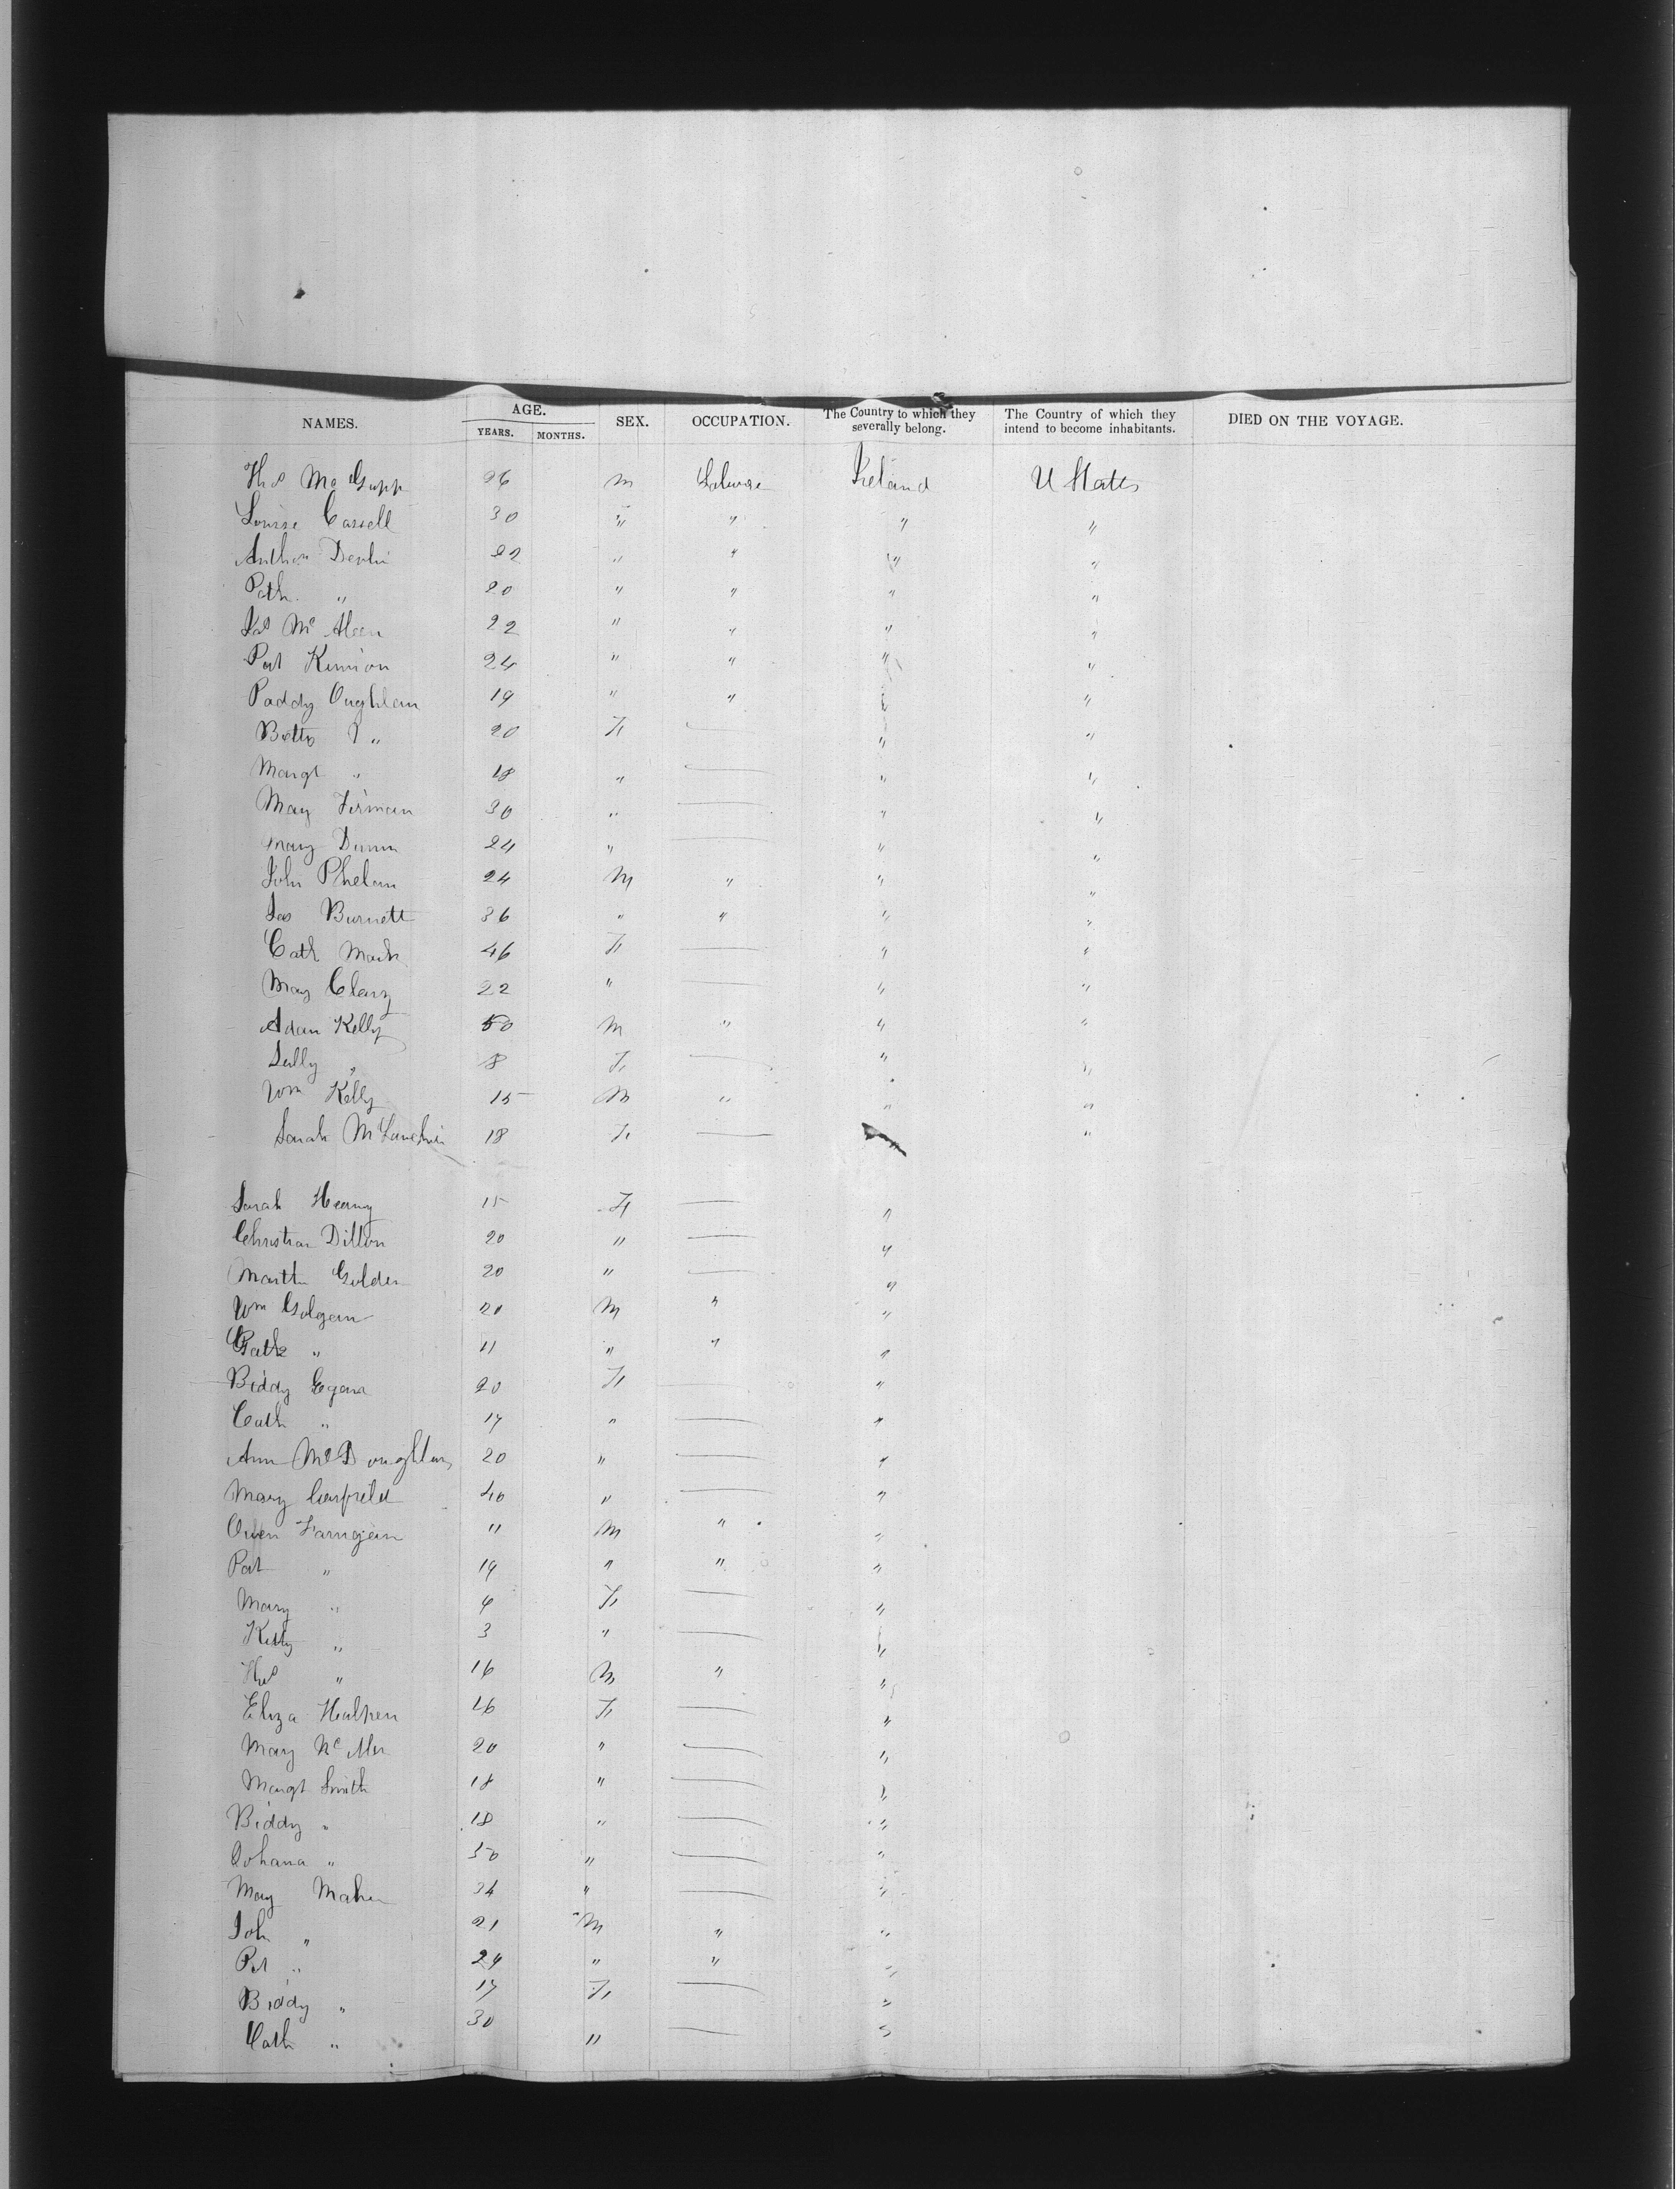 NAMES. AGE. YEARS. MONTHS. SEX. OCCUPATION. The Country to which they severally belong. The Country of which they intend to become inhabitants. DIED ON THE VOYAGE.
Thos Mc 26 m Ireland U States
Louisa Cassell 30 " " " "
Devlin 22 " " " "
Path. " 20 " " " "
Mc Aleen 22 " " " "
Pat Kennion 24 " " " "
Paddy Oughlan 19 " " " "
" 20 F " "
Margt " 18 " " "
Mary Firman 30 " " "
Mary Dunn 24 " " "
John Phelan 24 M " " "
Jas Burnett 36 " " " "
Cath Mark 46 F " "
Mary Cleary 22 " " "
Adam Kelly 50 M " " "
" 8 F " "
Wm Kelly 15 M " " "
Sarah 18 F "
Sarah Heany 15 F "
Christian Dillon 20 " "
Martha Golden 20 " "
Wm Golgan 20 M " "
" 11 " " "
Biddy Egan 20 F "
Cath " 17 " "
Ann 20 " "
Mary Canfield 40 " "
Owen 11 M " "
Pat " 19 " " "
Mary " F "
Kitty " 3 " "
Thos " 16 M " "
Eliza Halpen 16 F "
Mary 20 " "
Margt Smith 18 " "
Biddy " 18 " "
Johana " 50 " "
Mary Maher 34 " "
Joh " 21 M " "
Pat " 24 " " "
Biddy " 17 F "
Cath " 30 " "